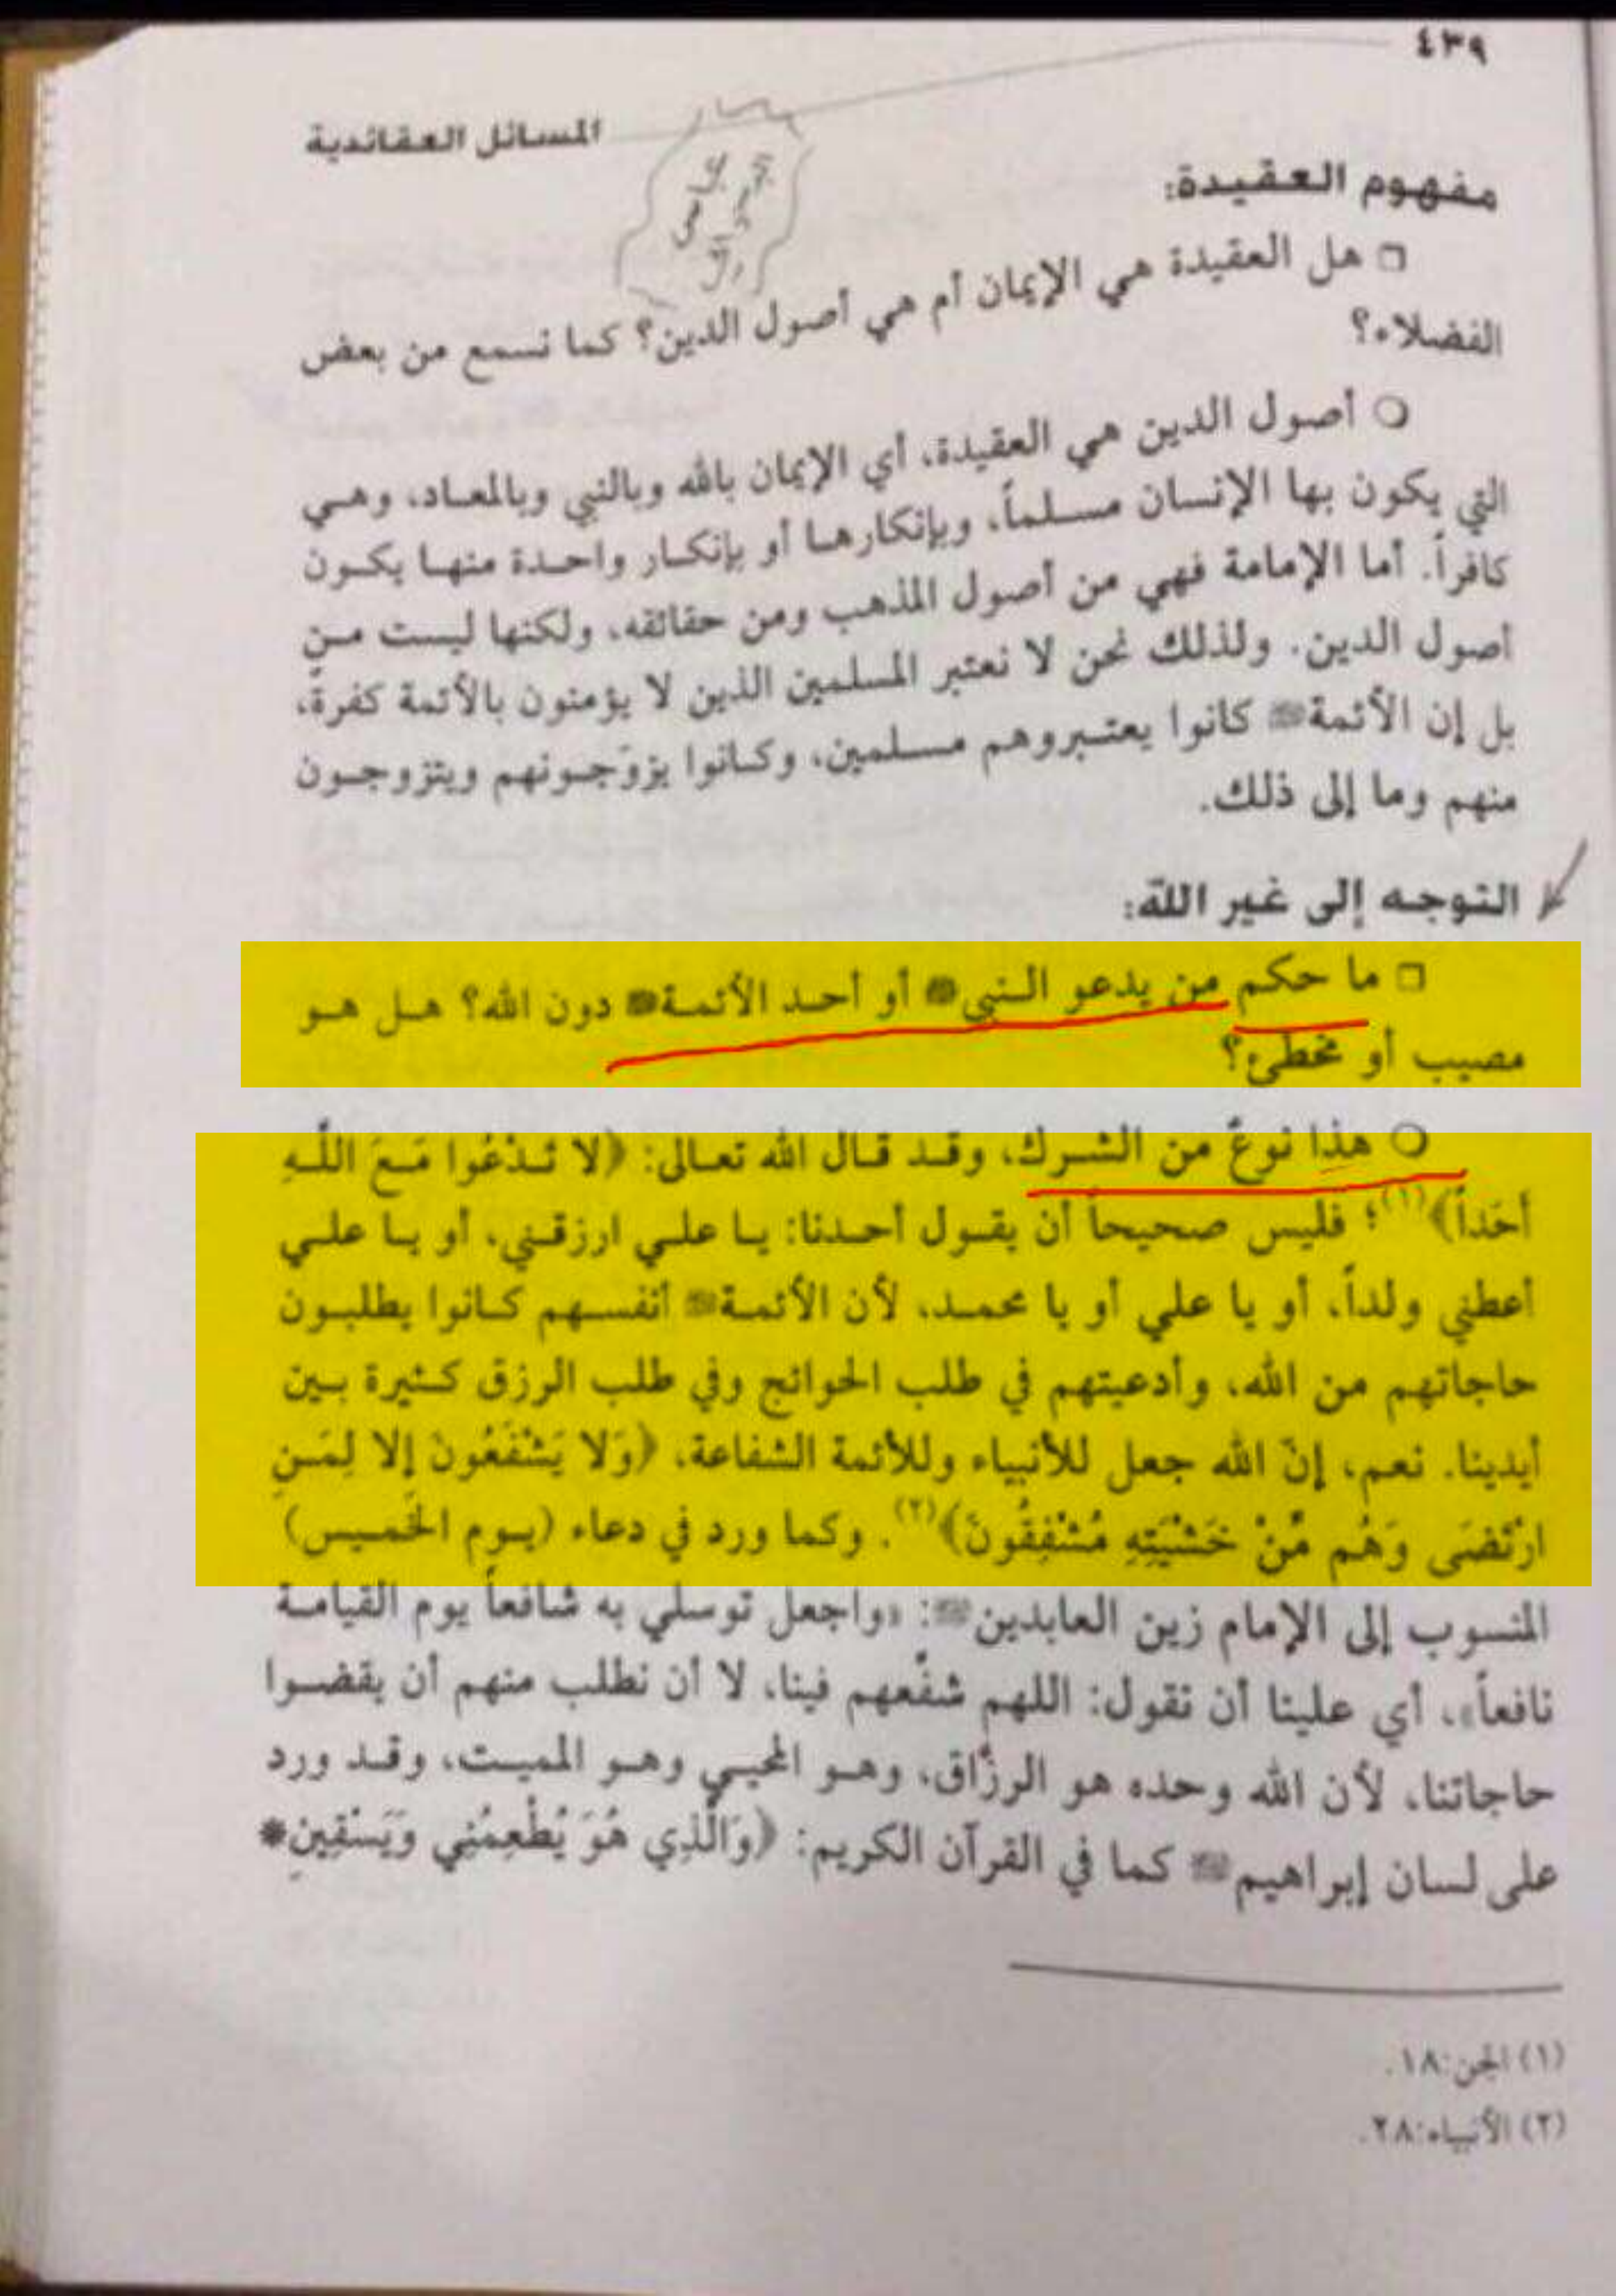 ٤٣٩
المسائل العقائدية
مفهوم العقيدة:
هل العقيدة هي الإيمان أم هي أصول الدين؟ كما نسمع من بعض
الفضلاء؟
أصول الدين هي العقيدة، أي الإيمان بالله وبالنبي وبالمعاد، وهي
التي يكون بها الإنسان مسلماً، وبإنكارها أو بإنكار واحدة منها يكون
كافراً. أما الإمامة فهي من أصول المذهب ومن حقائقه، ولكنها ليست من
أصول الدين. ولذلك نحن لا نعتبر المسلمين الذين لا يؤمنون بالأئمة كفرة،
بل إن الأئمة كانوا يعتبروهم مسلمين، وكانوا يزوّجونهم ويتزوجون
منهم وما إلى ذلك.
التوجه إلى غير الله:
ما حكم من يدعو النبي أو أحد الأئمة دون الله؟ هل هو
مصيب أو مخطئ؟
هذا نوعٌ من الشرك، وقد قال الله تعالى: ﴿لا تَدْعُوا مَعَ اللَّهِ
أحَداً﴾(١)؛ فليس صحيحاً أن يقول أحدنا: يا علي ارزقني، أو يا علي
أعطني ولداً، أو يا علي أو يا محمد، لأن الأئمة أنفسهم كانوا يطلبون
حاجاتهم من الله، وأدعيتهم في طلب الحوائج وفي طلب الرزق كثيرة بين
أيدينا. نعم، إنّ الله جعل للأنبياء وللأئمة الشفاعة، ﴿وَلا يَشْفَعُونَ إِلا لِمَنِ
ارْتَضَى وَهُم مِّنْ خَشْيَتِهِ مُشْفِقُونَ﴾(٢). وكما ورد في دعاء (يوم الخميس)
المنسوب إلى الإمام زين العابدين: «واجعل توسلي به شافعاً يوم القيامة
نافعاً»، أي علينا أن نقول: اللهم شفّعهم فينا، لا أن نطلب منهم أن يقضوا
حاجاتنا، لأن الله وحده هو الرزّاق، وهو المحيي وهو المميت، وقد ورد
على لسان إبراهيم كما في القرآن الكريم: ﴿وَالَّذِي هُوَ يُطْعِمُنِي وَيَسْقِينِ*
(١) الجن:١٨.
(٢) الأنبياء:٢٨.